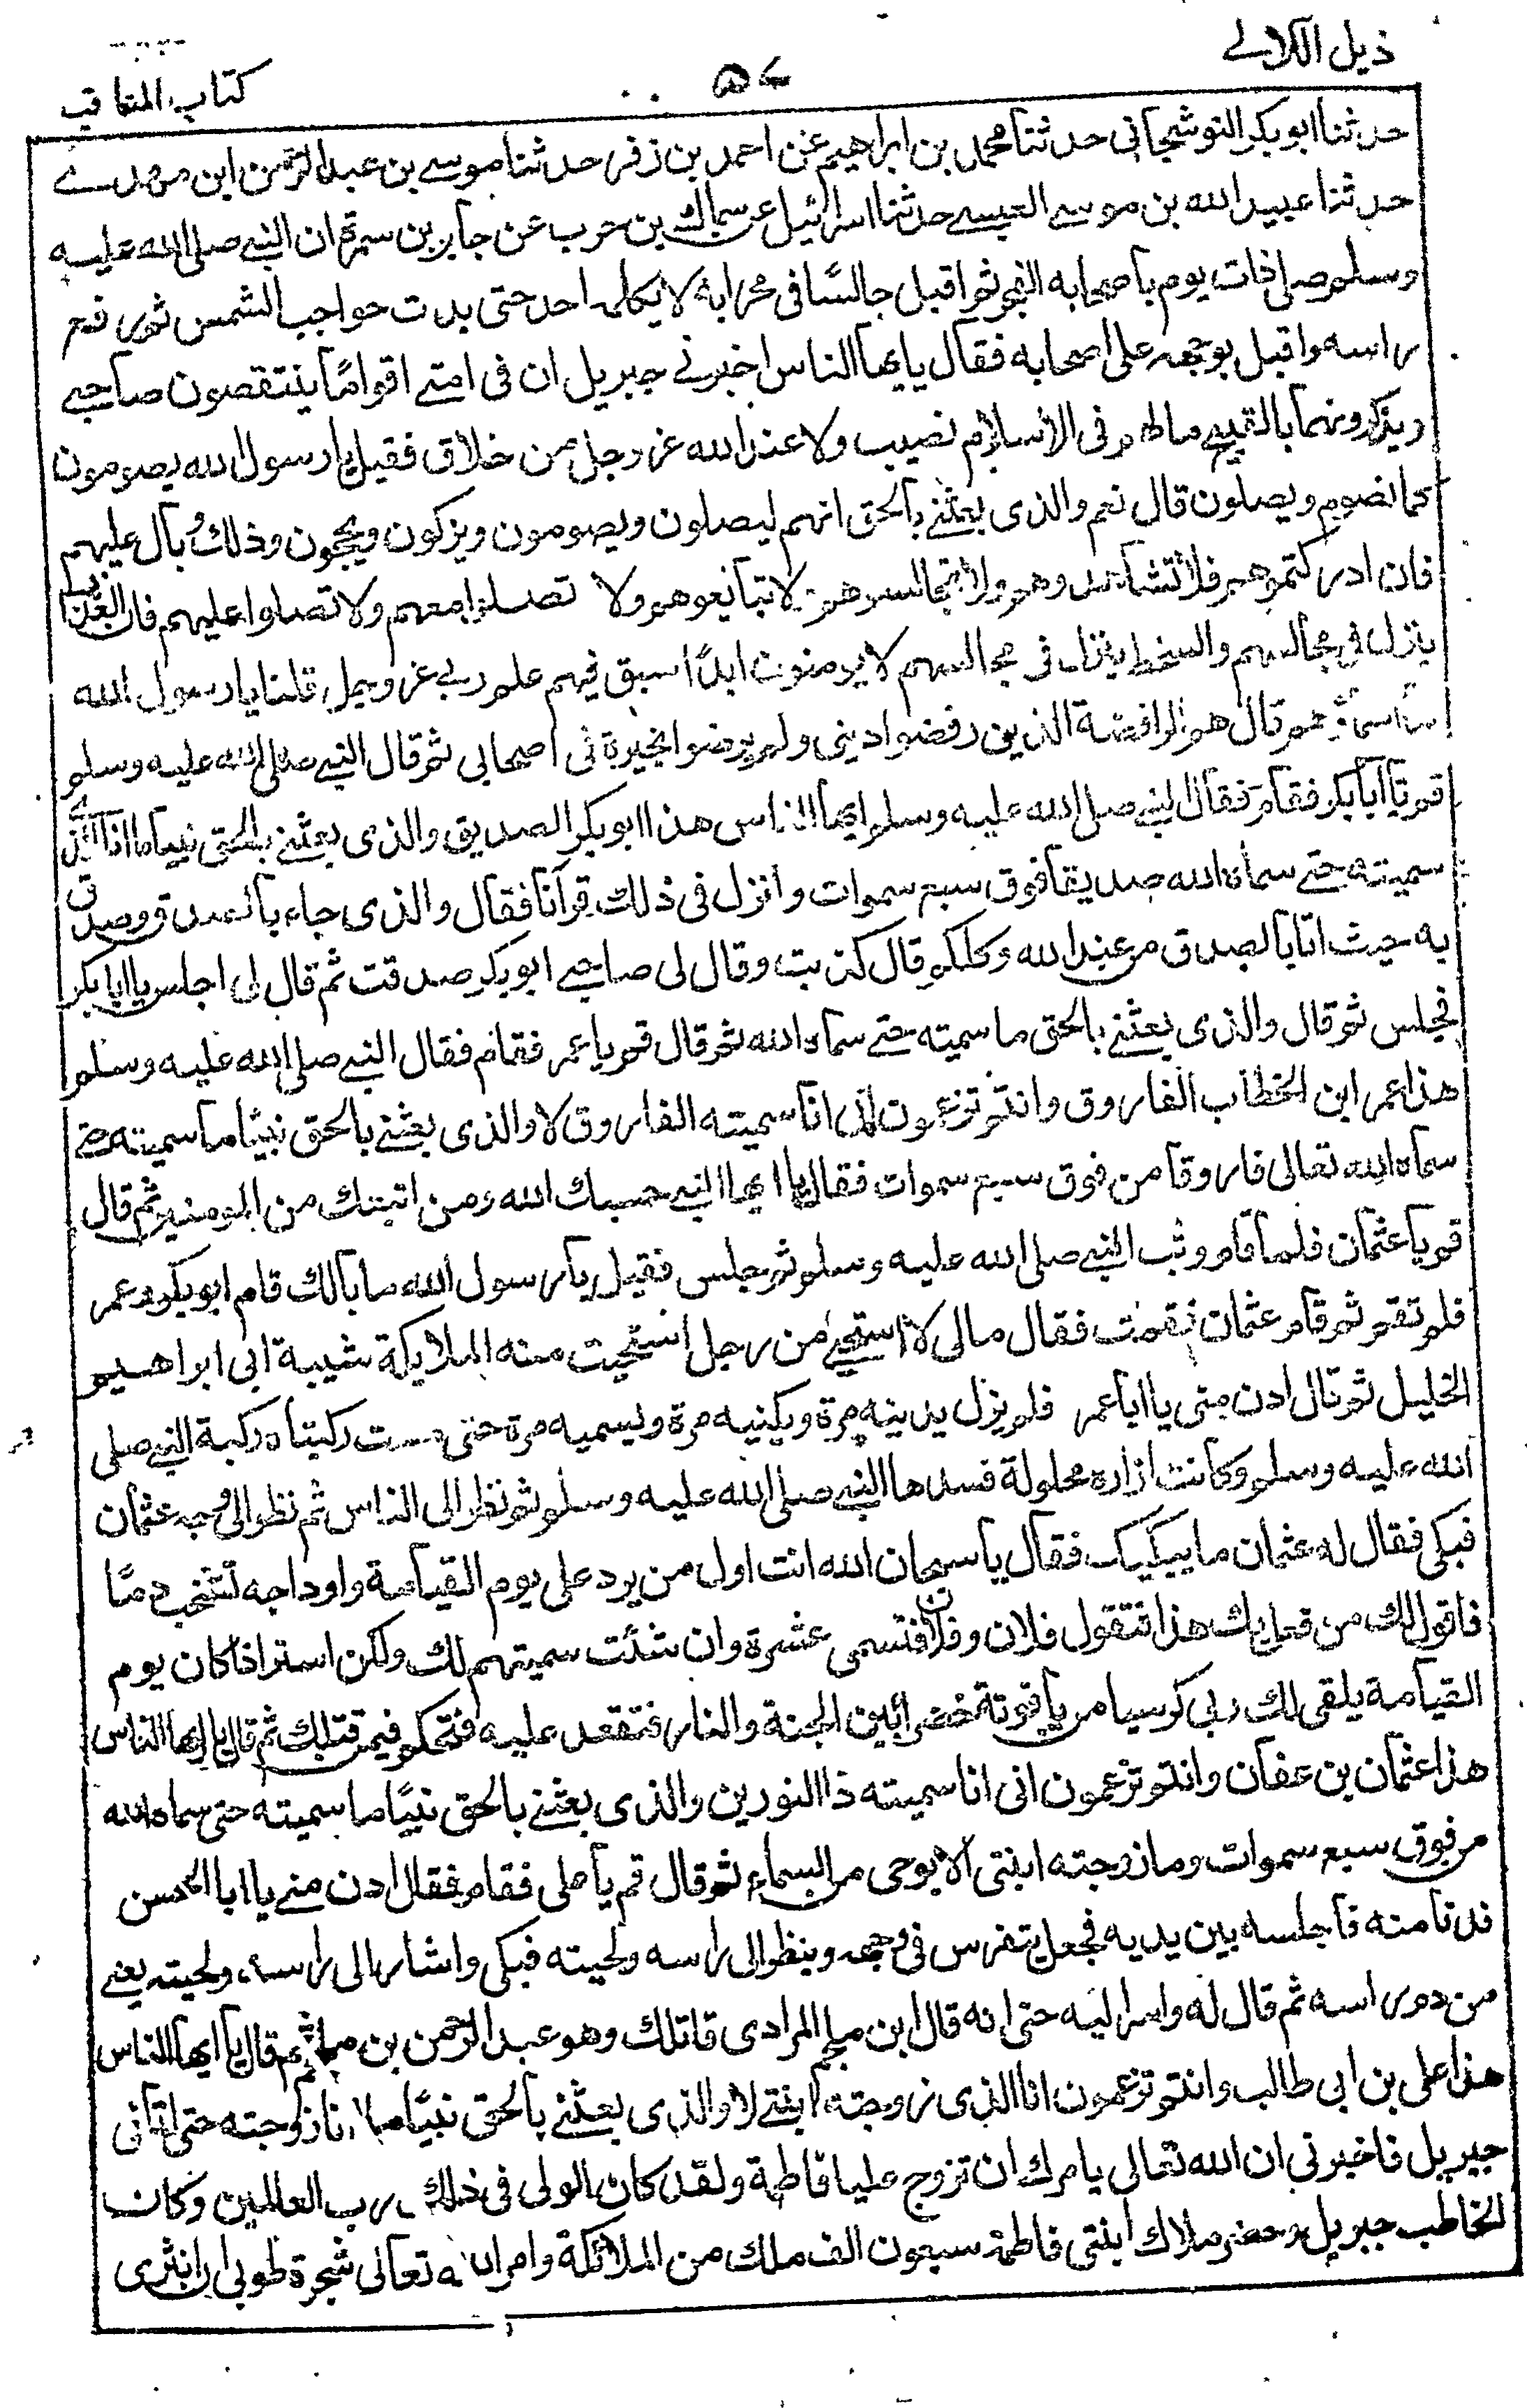 ذيل اللالے
۵۷
كتاب المناقب
حدثنا ابو بكر النوشجاني حدثنا محمد بن ابراهيم عن احمد بن زفر حدثنا موسے بن عبد الرحمن ابن مهدے
حدثنا عبيد الله بن موسے العبسے حدثنا اسرائيل عن سماك بن حرب عن جابر بن سمرة ان النبے صلى الله عليه
وسلم صلى ذات يوم باصحابه الفجر ثم اقبل جالسًا فى محرابه لا يكلمه احد حتى بدت حواجب الشمس ثم رفع
راسه واقبل بوجهه على اصحابه فقال يايها الناس اخبرنے جبريل ان فى امتے اقوامًا ينتقصون صاحبے
ويذكرونهما بالقبيح مالهم فى الاسلام نصيب ولا عند الله عز وجل من خلاق فقيل يا رسول الله يصومون
كما نصوم ويصلون قال نعم والذى بعثنے بالحق انهم ليصلون ويصومون ويزكون ويحجون وذلك وبال عليهم
فان ادركتموهم فلا تشاهدوهم ولا تجالسوهم لا تبايعوهم ولا تصلوا معهم ولا تصلوا عليهم فان العذاب
ينزل فى مجالسهم والسخط ينزل فى مجالسهم لا يومنون ابدًا سبق فيهم علم ربى عز وجل قلنا يا رسول الله
ما اسماؤهم قال هم الرافضة الذين رفضوا دينى ولم يرضوا بخيرة فى اصحابى ثم قال النبے صلى الله عليه وسلم
قم يا ابا بكر فقام فقال النبے صلى الله عليه وسلم ايها الناس هذا ابو بكر الصديق والذى بعثنے بالحق نبيا ما انا الذے
سميته حتے سماه الله صديقا فوق سبع سموات وانزل فى ذلك قرآنا فقال والذى جاء بالصدق وصدق
به حيث اتانا بالصدق من عند الله وكلكم قال كذبت وقال لى صاحبے ابو بكر صدقت ثم قال لى اجلس يا ابا بكر
فجلس ثم قال والذى بعثنے بالحق ما سميته حتے سماه الله ثم قال قم يا عمر فقام فقال النبے صلى الله عليه وسلم
هذا عمر ابن الخطاب الفاروق وانتم تزعمون انى انا سميته الفاروق لا والذى بعثنے بالحق نبيًا ما سميته حتے
سماه الله تعالى فاروقا من فوق سبع سموات فقال يا ايها النبے حسبك الله ومن اتبعك من المومنين ثم قال
قم يا عثمان فلما قام وثب النبے صلى الله عليه وسلم ثم جلس فقيل يا رسول الله ما بالك قام ابو بكر وعمر
فلم تقم ثم قام عثمان فقمت فقال مالى لا استحيے من رجل استحيت منه الملايكة شيبة ابى ابراهيم
الخليل ثم قال ادن منى يا ابا عمر فلم يزل يدينه مرة ويكنيه مرة ويسميه مرة حتى مست ركبتاه ركبة النبے صلى
الله عليه وسلم وكانت ازاره محلولة فسدها النبے صلى الله عليه وسلم ثم نظر الى الناس ثم نظر الى وجه عثمان
فبكى فقال له عثمان ما يبكيك فقال يا سبحان الله انت اول من يرد على يوم القيامة واوداجه تشخب دمًا
فاقول لك من فعل بك هذا فتقول فلان وفلان فتسمى عشرة وان شئت سميتهم لك ولكن استر اذا كان يوم
القيامة يلقى لك ربى كرسيا من ياقوتة خضرا بين الجنة والنار فتقعد عليه فتحكم فيمن قتلك ثم قال يا ايها الناس
هذا عثمان بن عفان وانتم تزعمون انى انا سميته ذا النورين والذى بعثنے بالحق نبيًا ما سميته حتى سماه الله
من فوق سبع سموات وما زوجته ابنتى الا بوحى من السماء ثم قال قم يا على فقام فقال ادن منے يا ابا الحسن
فدنا منه فاجلسه بين يديه فجعل يتفرس فى وجهه وينظر الى راسه ولحيته فبكى واشار الى راسه ولحيته يعنے
من دم راسه ثم قال له واسر اليه حتى انه قال ابن ملجم المرادى قاتلك وهو عبد الرحمن بن ملجم ثم قال يا ايها الناس
هذا على بن ابى طالب وانتم تزعمون انا الذى زوجته ابنتے لا والذى بعثنے بالحق نبيًا ما انا زوجته حتى اتانى
جبريل فاخبرنى ان الله تعالى يامرك ان تزوج عليا فاطمة ولقد كان الولى فى ذلك رب العالمين وكان
الخاطب جبريل وحضر ملاك ابنتى فاطمة سبعون الف ملك من الملائكة وامر الله تعالى شجرة طوبى ان انثرى